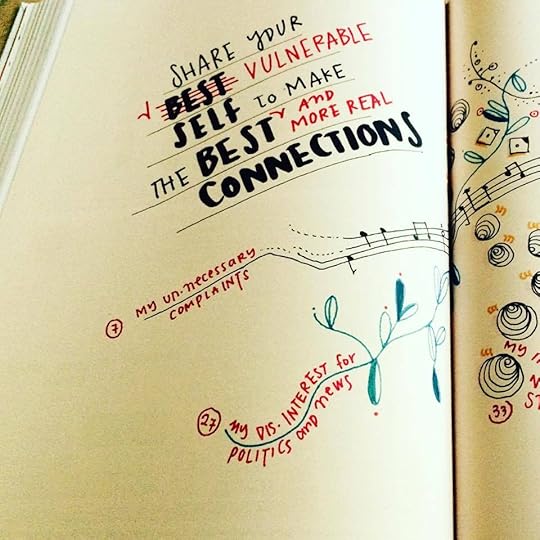 SHARE YOUR
BEST VULNERABLE
SELF TO MAKE
THE BEST AND MORE REAL
CONNECTIONS
7 MY UN.NECESSARY
COMPLAINTS
27 MY DIS.INTEREST for
POLITICS and NEWS
MY
33